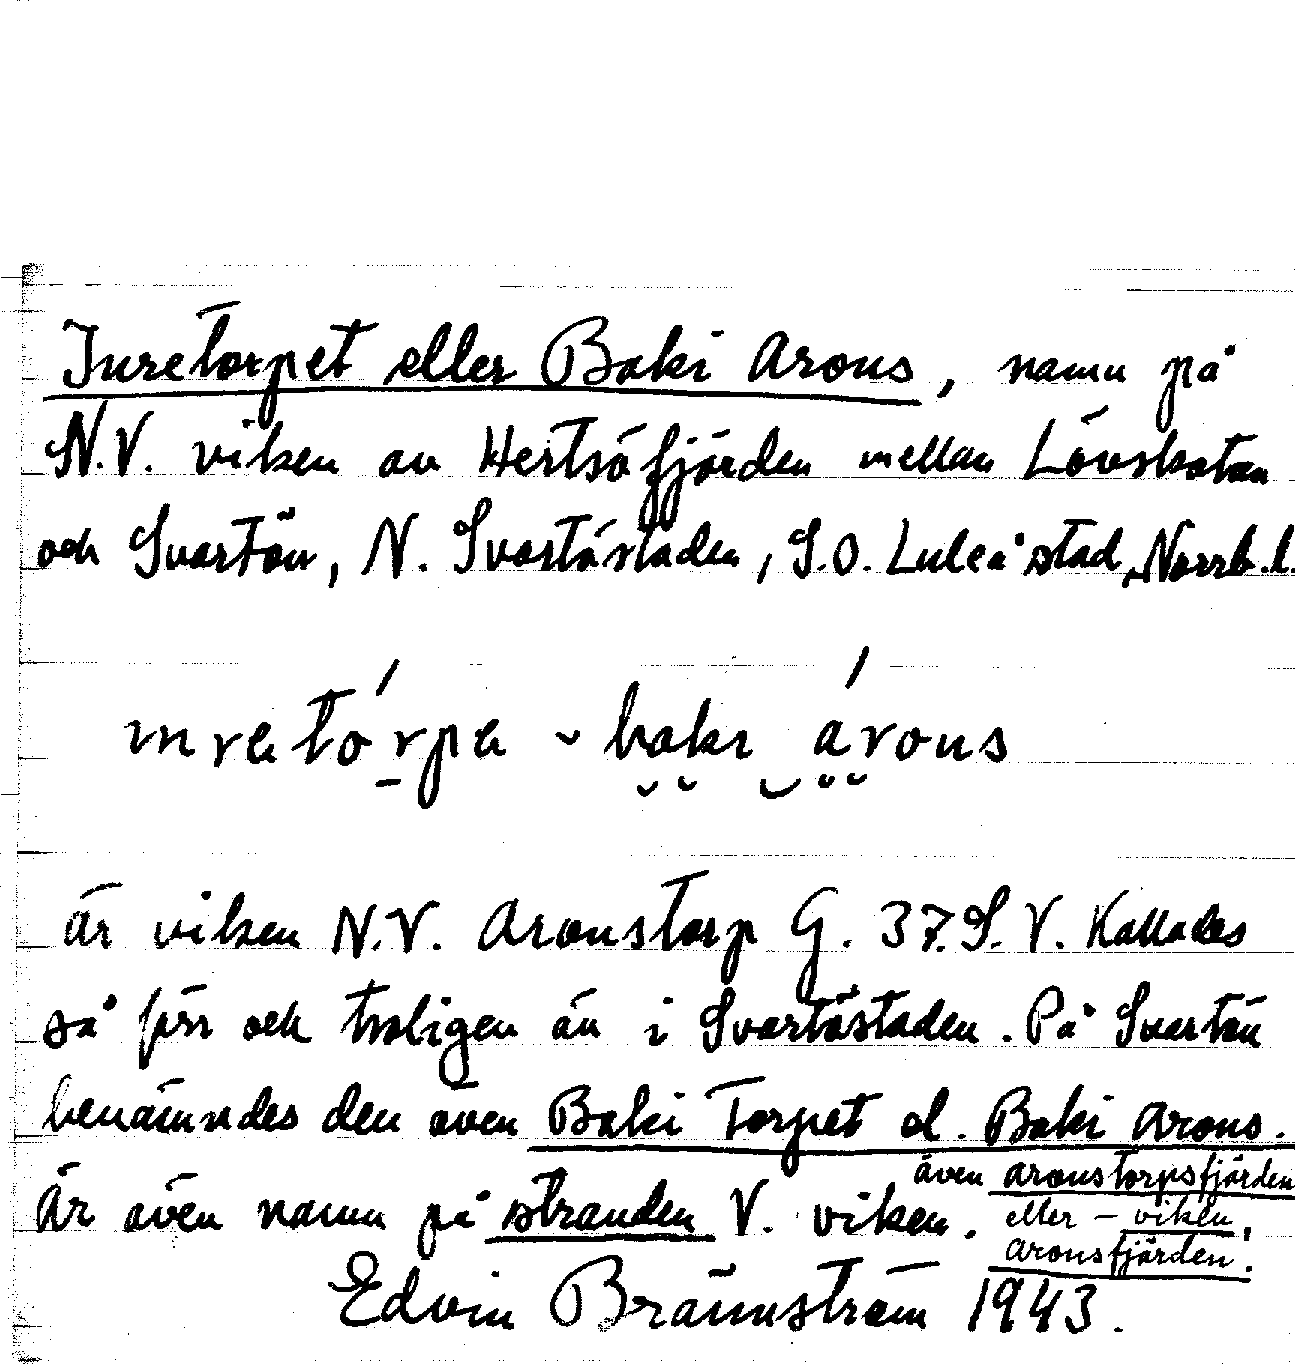 Inretorpet eller Baki Arons, namn på
N.V. viken av Hertsöfjärden mellan Lövskatan
och Svartön, N. Svartöstaden, S.O. Luleå stad, Norrb.l.
inretórpe - baki árons
är viken N.V. Aronstorp G. 37. S.V. Kallades
så förr och troligen än i Svartöstaden. På Svartön
benämndes den även Baki Torpet el. Baki Arons.
även aronstorpsfjärden
Är även namn på stranden V. viken. eller - viken,
aronsfjärden.
Edvin Brännström 1943.